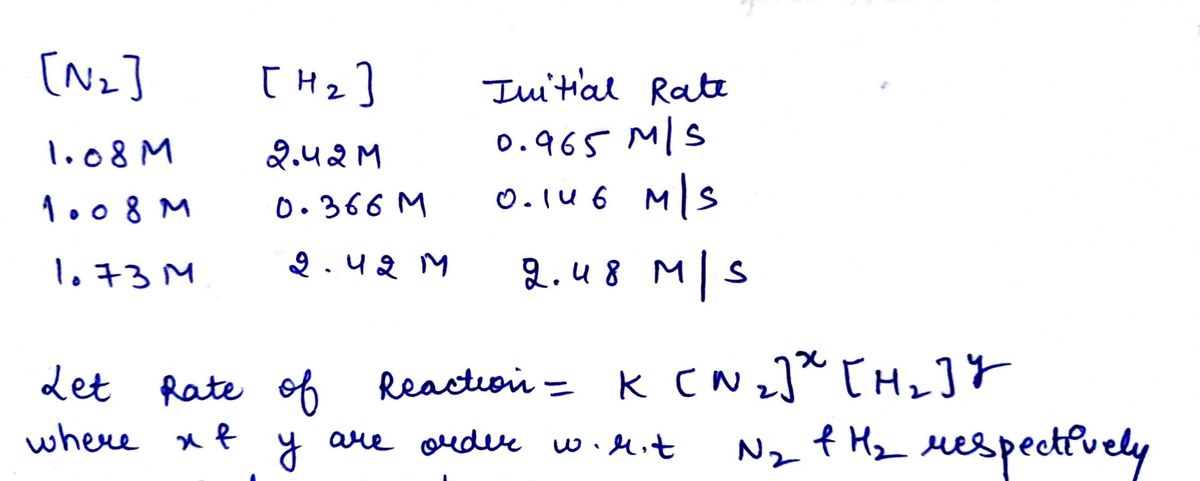 [N₂] [H₂] Initial Rate
1.08 M 2.42 M 0.965 M/S
1.08 M 0.366 M 0.146 M/S
1.73 M 2.42 M 2.48 M/S
Let Rate of Reaction = K [N₂]ˣ [H₂]ʸ
where x & y are order w.r.t N₂ & H₂ respectively